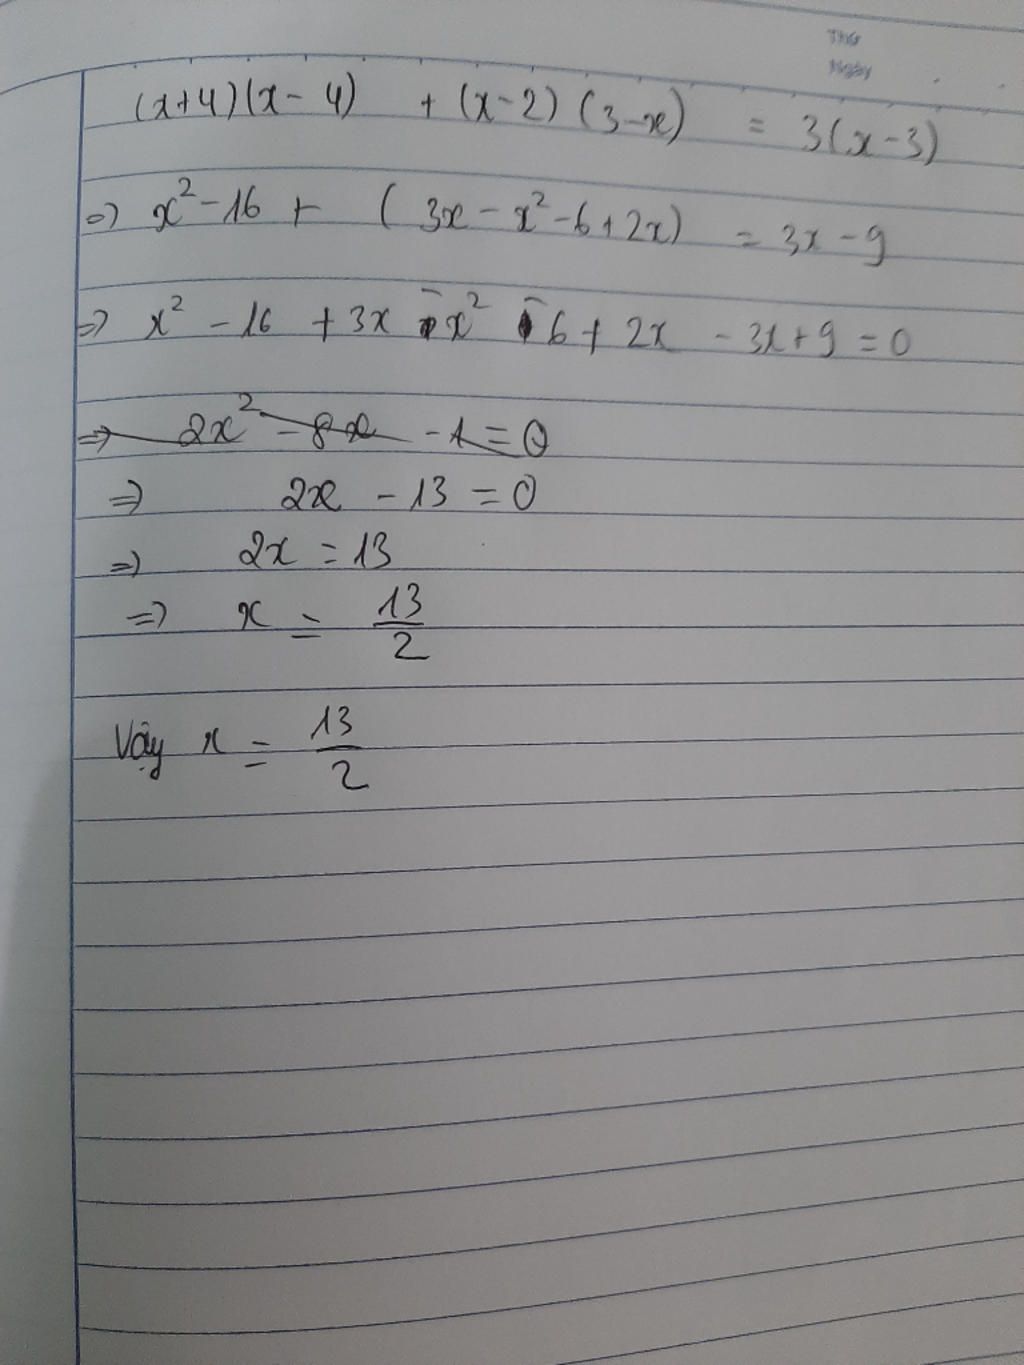 Thứ
Ngày
(x+4)(x-4) + (x-2)(3-x) = 3(x-3)
=> x²-16 + (3x-x²-6+2x) = 3x-9
=> x² - 16 + 3x - x² - 6 + 2x - 3x + 9 = 0
=> 2x² - 8x - 1 = 0
=> 2x - 13 = 0
=> 2x = 13
=> x = 13/2
Vậy x = 13/2